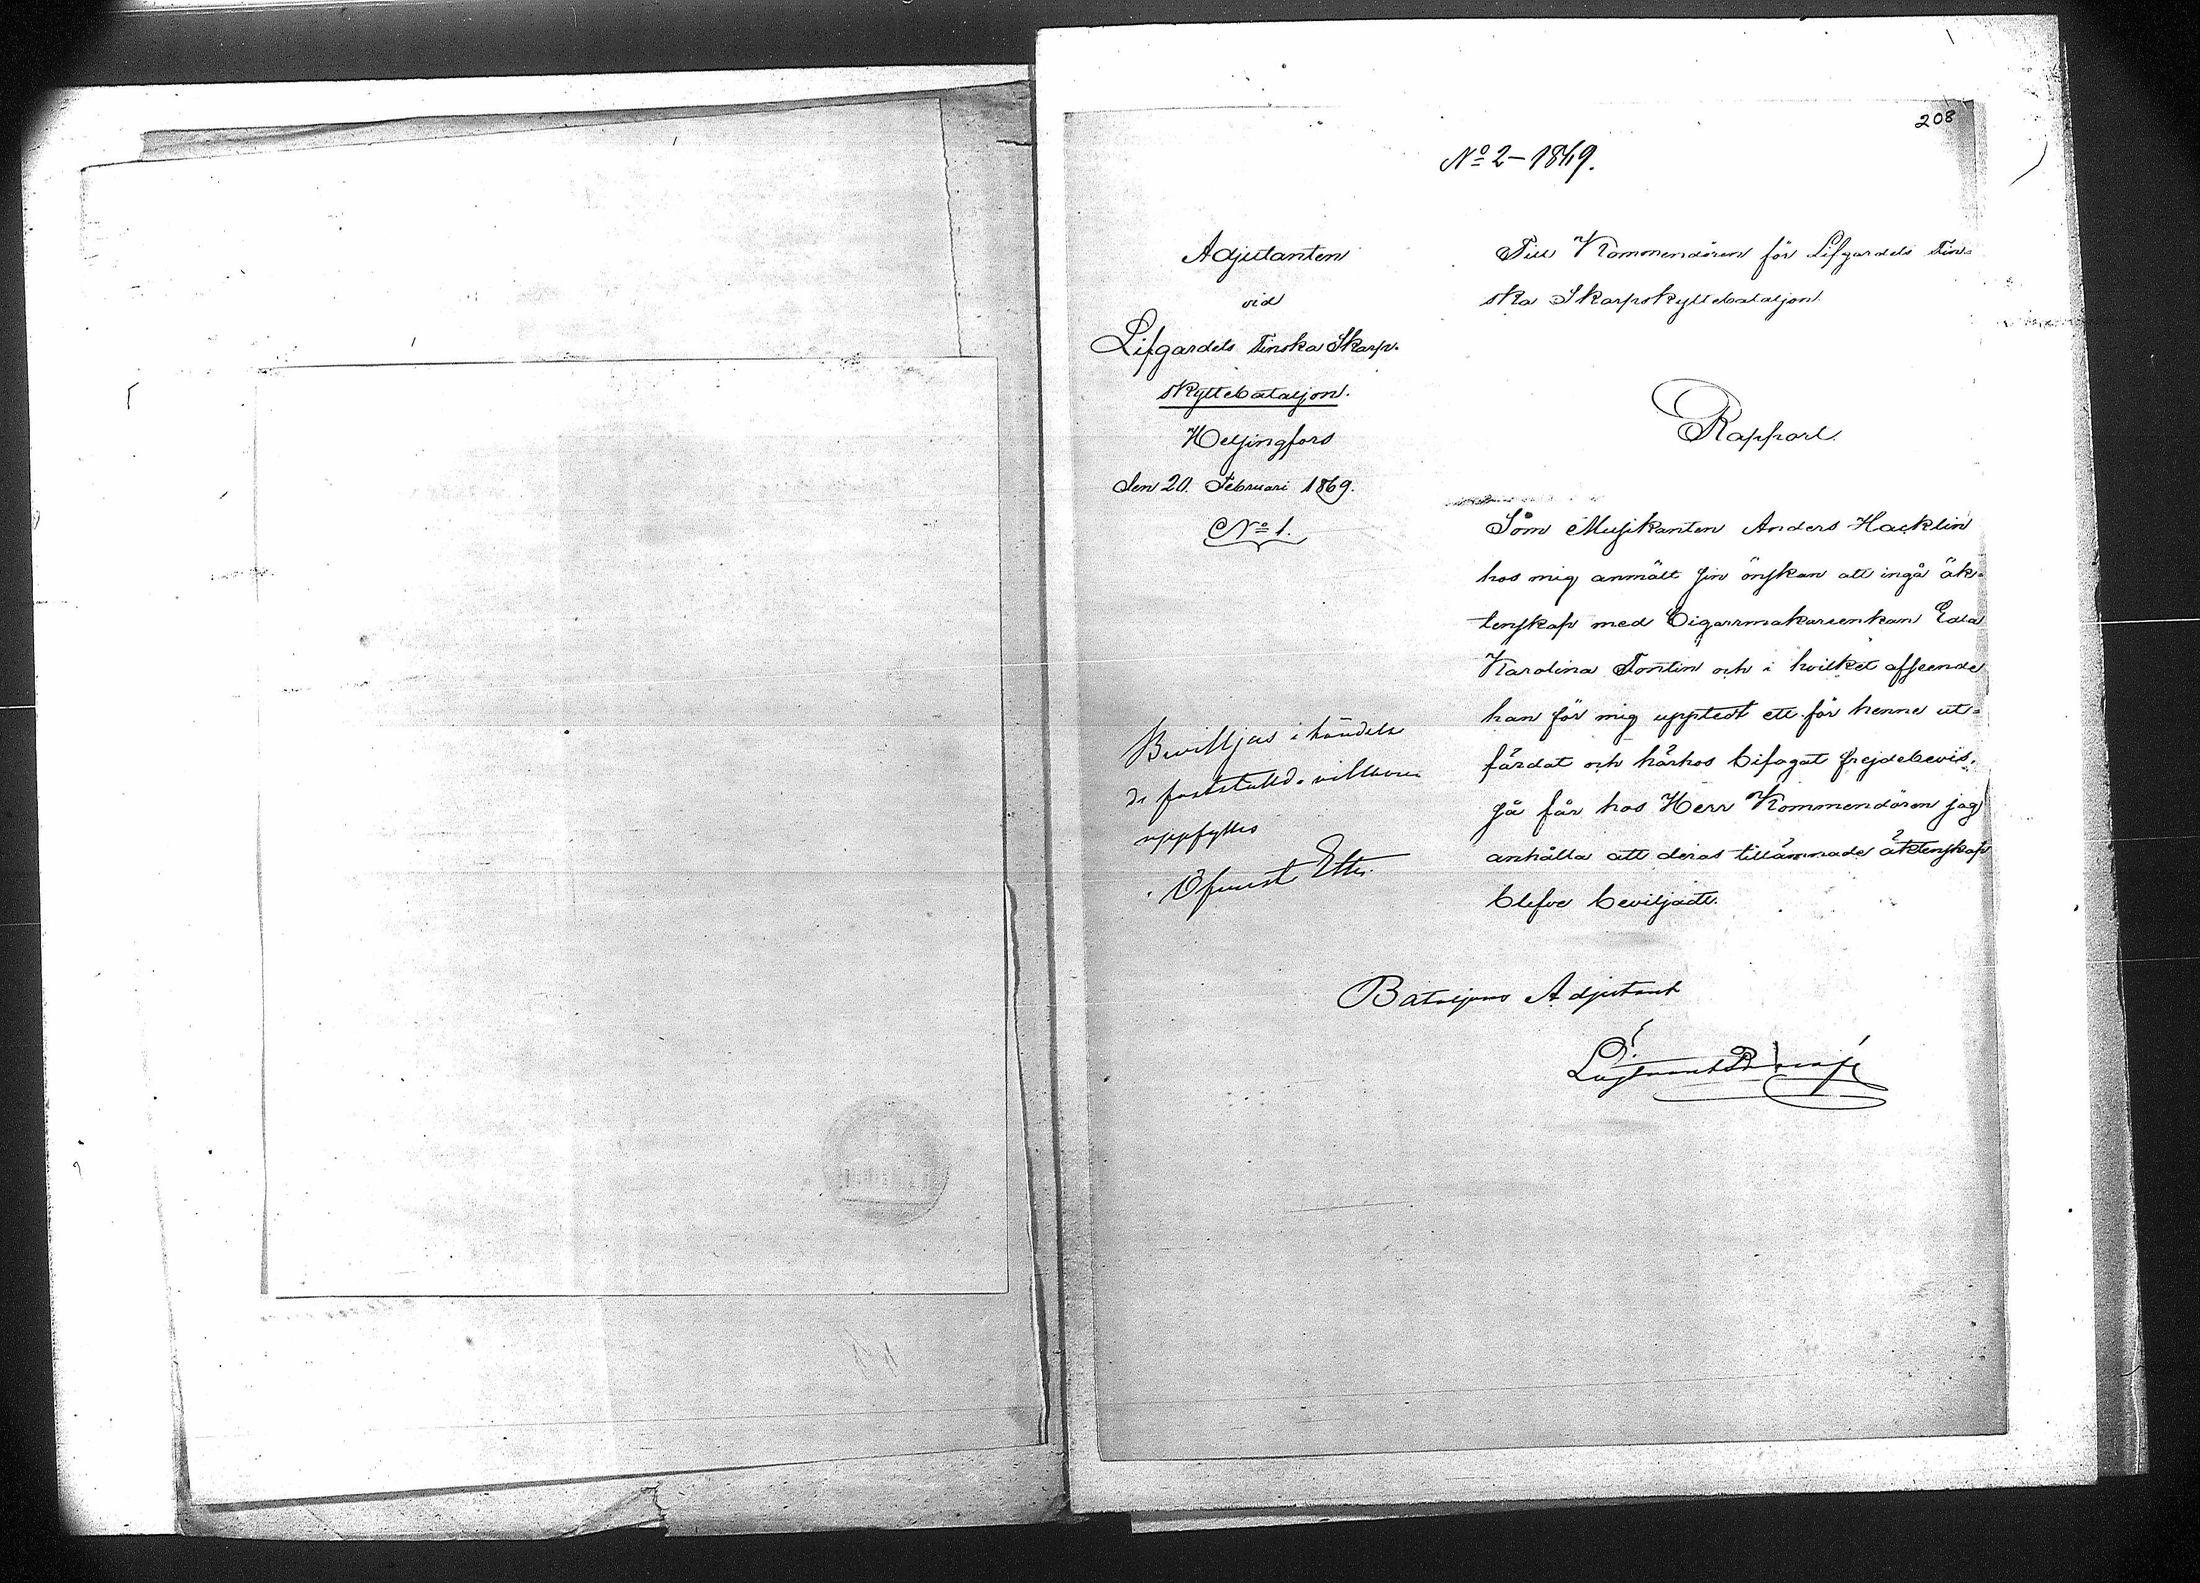 208
No 2-1869.
Adjutanten
vid
Lifgardets Finska Skarp-
skyttebataljon.
Helsingfors
den 20. Februari 1869.
No 1.
Till Kommendören för Lifgardets Fin-
ska Skarpskyttebataljon.
Rapport.
Som Musikanten Anders Hacklin
hos mig anmält sin önskan att ingå äk-
tenskap med Cigarrmakareenkan Edla
Karolina Tontin och i hvilket afseende
han för mig upptedt ett för henne ut-
färdat och härhos bifogat frejdebevis,
så får hos Herr Kommendören jag
anhålla att deras tillämnade äktenskap
blefve beviljadt.
Beviljas i händelse
de fastställda villkoren
uppfylles
Öfverst
Bataljons Adjutant
Löjtnant